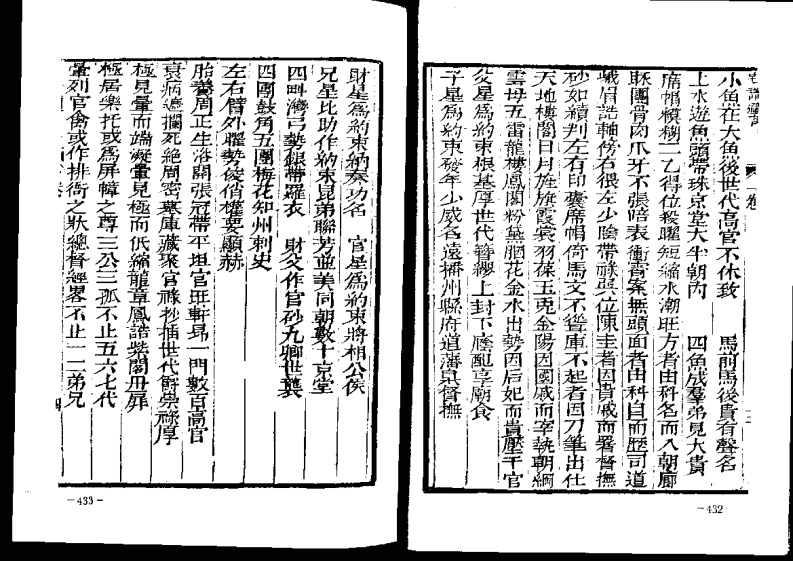 小魚在大魚後世代高官不休致　馬前馬後貴有聲名
上水遊魚頭帶珠京堂大半朝內　四魚成羣弟兄大貴
席帽模糊一乙得位投曜短縮水潮旺方者由科名而入朝廊
旺團骨肉爪牙不張暗表衝霄案無頭面者由科目而歷司道
峨眉誥軸傍右很左少陰帶祿與位陳圭者因貴戚而署督撫
砂如績判左右印囊席帽倚馬文不聳庫不起者因刀筆出仕
天地樓閣日月旌旗霞裳羽葆玉兎金陽因國戚而宰執朝綱
雲母五雷龍樓鳳閣粉黛胭花金水出勢因后妃而貴壓千官
父星爲約束根基厚世代簪纓上封下廕配享朝食
子星爲約束發年少威名遠播州縣府道藩臬督撫
－432－
財星爲約束納奏功名　官星爲約束將相公侯
兄星比助作約束昆弟聯芳並美同朝數十京堂
四畔灣弓勢銀帶羅衣　財父作官砂九卿世襲
四圍鼓角五團梅花知州刺史
左右臂外曜勢俊俏權要顯赫
胎養周正生浴開張冠帶平坦官旺軒昂一門數百高官
衰病遮攔死絕周密墓庫藏聚官祿抄插世代爵崇祿厚
極見暈而端凝暈見極而低縮龍章鳳誥紫閣丹屏
極居樂托或爲屏幛之尊三公三孤不止五六七代
暈列官禽或作排衙之狀總督經畧不止一二弟兄
－433－